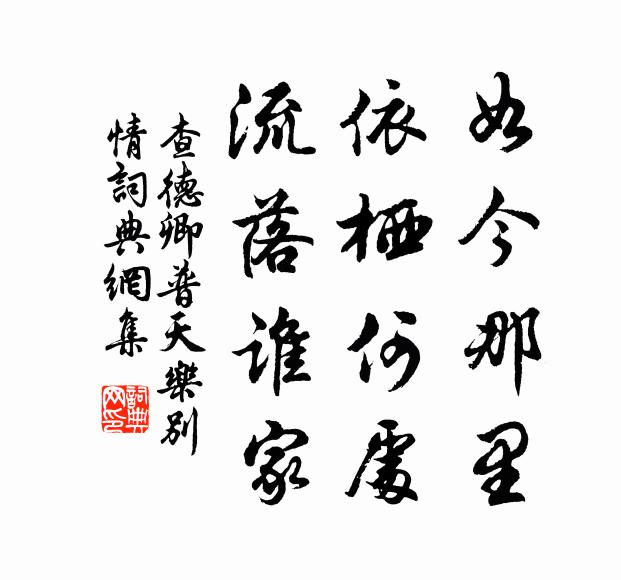 如今那里
依栖何處
流落誰家
查德卿普天樂別
情詞典網集
詞典网印